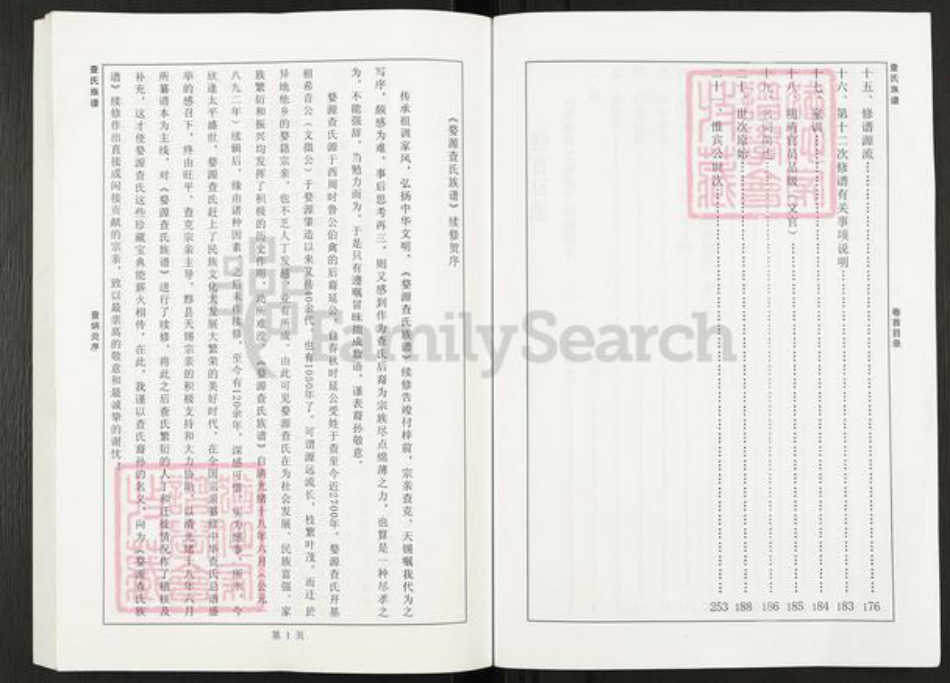 查氏族谱
卷首目录
十五、修谱源流 176
十六、第十二次修谱有关事项说明 183
十七、家训 184
十八、明清官员品级（文官） 185
186
二十、世次原始 188
惟宾公世次 253
查氏族谱
查炳炎序
《婺源查氏族谱》续修贺序
传承祖训家风，弘扬中华文明，《婺源查氏族谱》续修告竣付梓前，宗亲查克、天锡嘱我代为之
写序，颇感为难。事后思考再三，则又感到作为查氏后裔为宗族尽点绵薄之力，也算是一种尽孝之
为，不能强辞，当勉力而为。于是只有遵嘱冒昧拙成数语，谨表裔孙敬意。
婺源查氏源于西周时鲁公伯禽的后裔延公，自春秋时延公受姓于查至今近2700年。婺源查氏开基
祖希音公（文徵公）于婺源肇造以来又传40余代，也有1050年了，可谓源远流长，枝繁叶茂。而迁於
异地他乡的婺籍宗亲，也不乏人丁发越，业有所成。由此可见婺源查氏在为社会发展、民族富强、家
族繁衍和振兴均发挥了积极的历史作用，功所难没。《婺源查氏族谱》自清光绪十八年六月（公元一
八九二年）续辑后，缘由诸种因素，之后未作续修，至今有120余年，深感可惜，实为憾事。所幸，今
欣逢太平盛世，婺源查氏赶上了民族文化大发展大繁荣的美好时代，在全国宗亲纂修中华查氏总谱盛
举的感召下，终由旺平、查克宗亲主导，黟县天锡宗亲的积极支持和大力协助，以清光绪十八年六月
所纂谱本为主线，对《婺源查氏族谱》进行了续修，将此之后查氏繁衍的人丁和迁徙情况作了稽核及
补充，这才使婺源查氏这些珍藏宝典能薪火相传，在此，我谨以查氏裔孙的名义，向为《婺源查氏族
谱》续修作出直接或间接贡献的宗亲，致以最崇高的敬意和最诚挚的谢忱！
第1页
FamilySearch